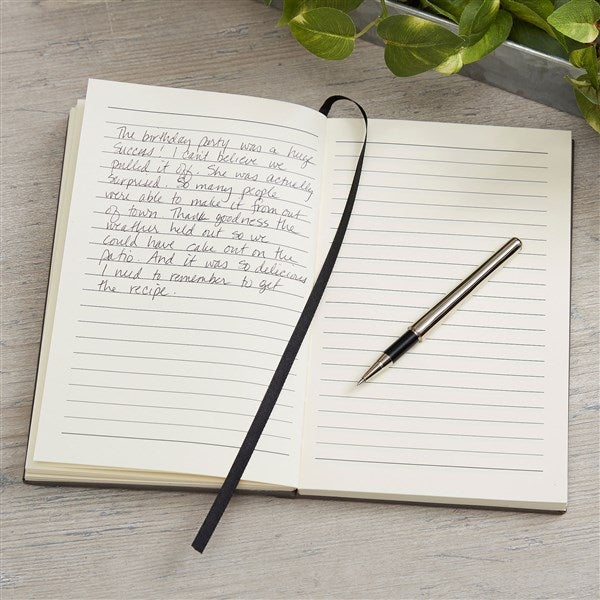 The birthday party was a huge
success! I can't believe we
pulled it off. She was actually
surprised. So many people
were able to make it from out
of town. Thank goodness the
weather held out so we
could have cake out on the
patio. And it was so delicious
I need to remember to get
the recipe.